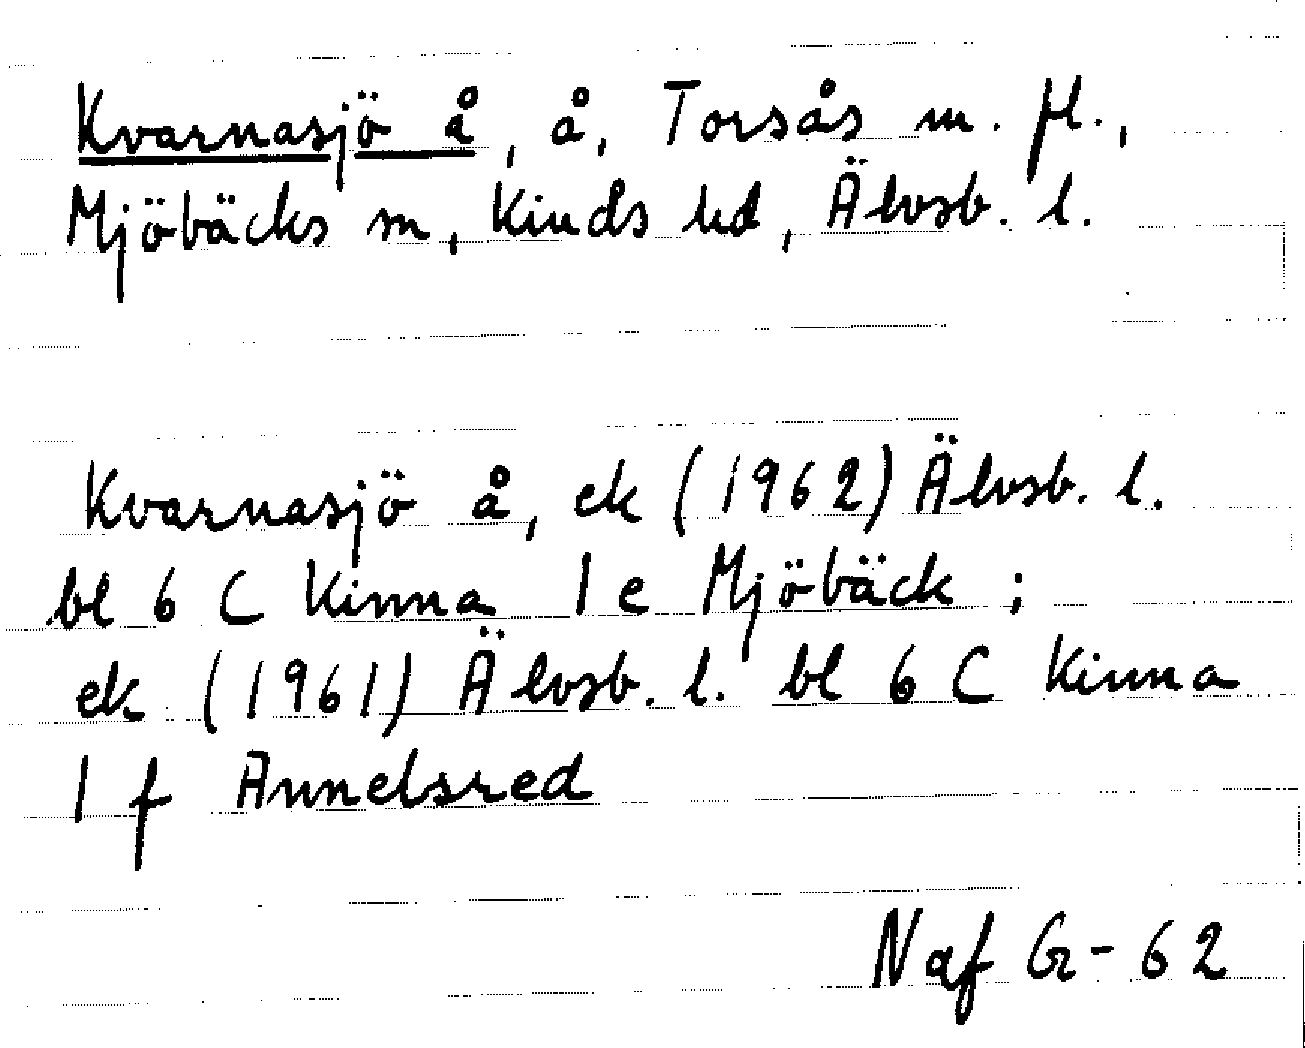 Kvarnasjö å, å, Torsås m. fl.,
Mjöbäcks sn, Kinds hd, Älvsb. l.
Kvarnasjö å, ek (1962) Älvsb. l.
bl 6 C Kinna 1 e Mjöbäck ;
ek (1961) Älvsb. l. bl 6 C Kinna
1 f Annelsred
Naf Gr-62